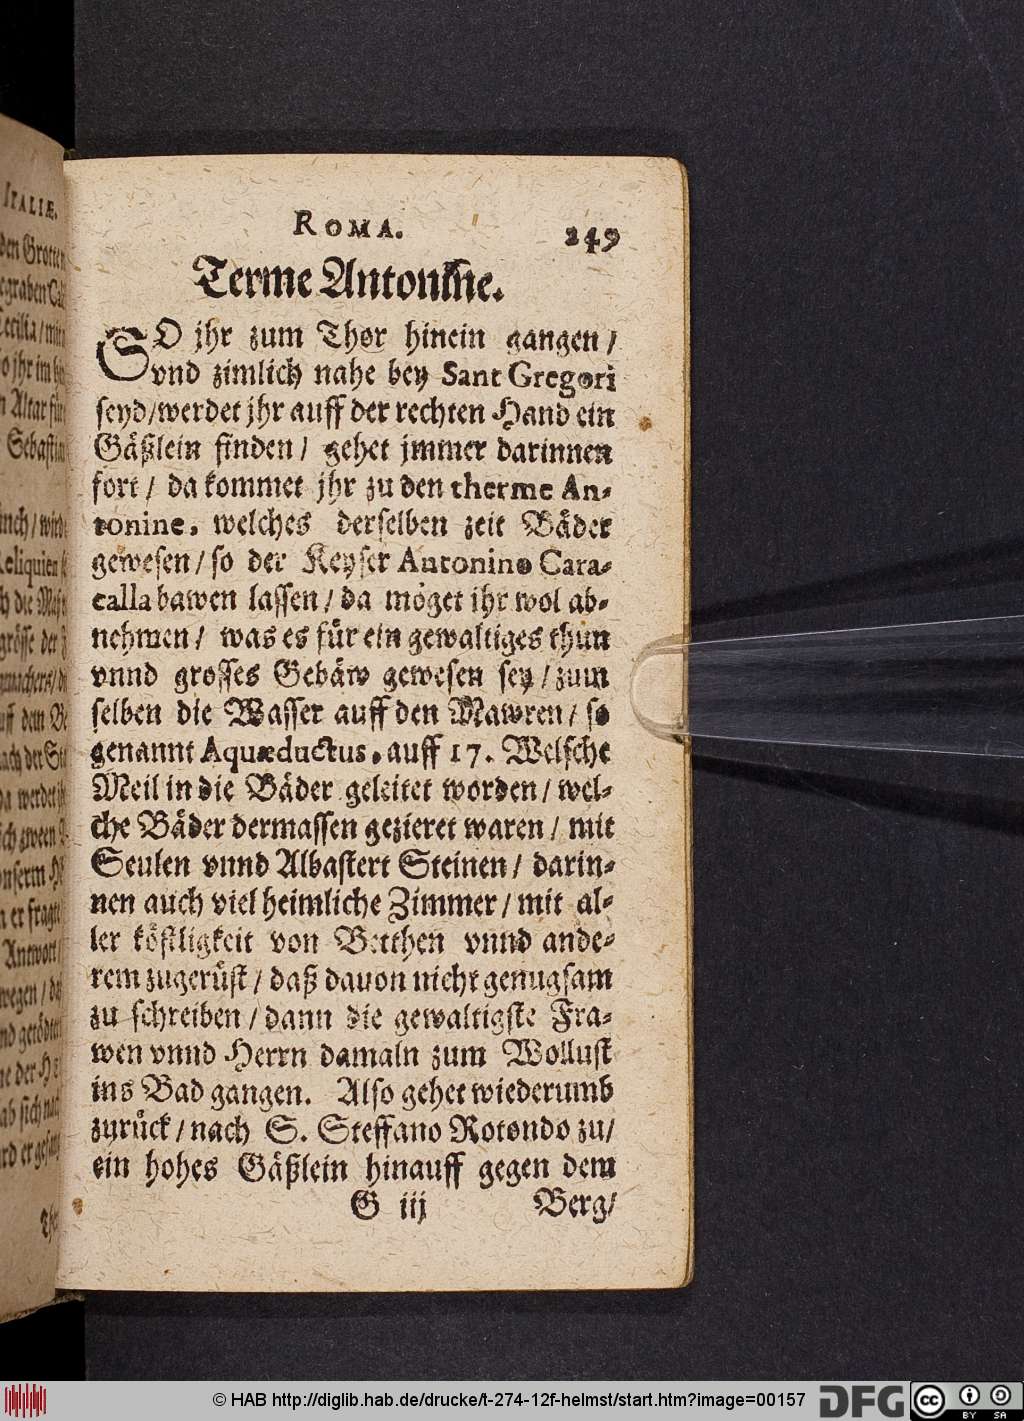 ROMA. 249
Terme Antonine.
SO jhr zum Thor hinein gangen /
vnd zimlich nahe bey Sant Gregori
seyd/werdet jhr auff der rechten Hand ein
Gäßlein finden / gehet jmmer darinnen
fort / da kommet jhr zu den therme An-
tonine, welches derselben zeit Bäder
gewesen / so der Keyser Antonino Cara-
calla bawen lassen / da möget ihr wol ab-
nehmen / was es für ein gewaltiges thun
vnnd grosses Gebäw gewesen sey / zum
selben die Wasser auff den Mawren / so
genannt Aquæductus, auff 17. Welsche
Meil in die Bäder geleitet worden / wel-
che Bäder dermassen gezieret waren / mit
Seulen vnnd Albastert Steinen / darin-
nen auch viel heimliche Zimmer / mit al-
ler köstligkeit von Betthen vnnd ande-
rem zugerüst / daß dauon nicht genugsam
zu schreiben / dann die gewaltigste Fra-
wen vnnd Herrn damaln zum Wollust
ins Bad gangen. Also gehet wiederumb
zurück / nach S. Steffano Rotondo zu/
ein hohes Gäßlein hinauff gegen dem
G iij Berg/
© HAB http://diglib.hab.de/drucke/t-274-12f-helmst/start.htm?image=00157 DFG cc BY SA